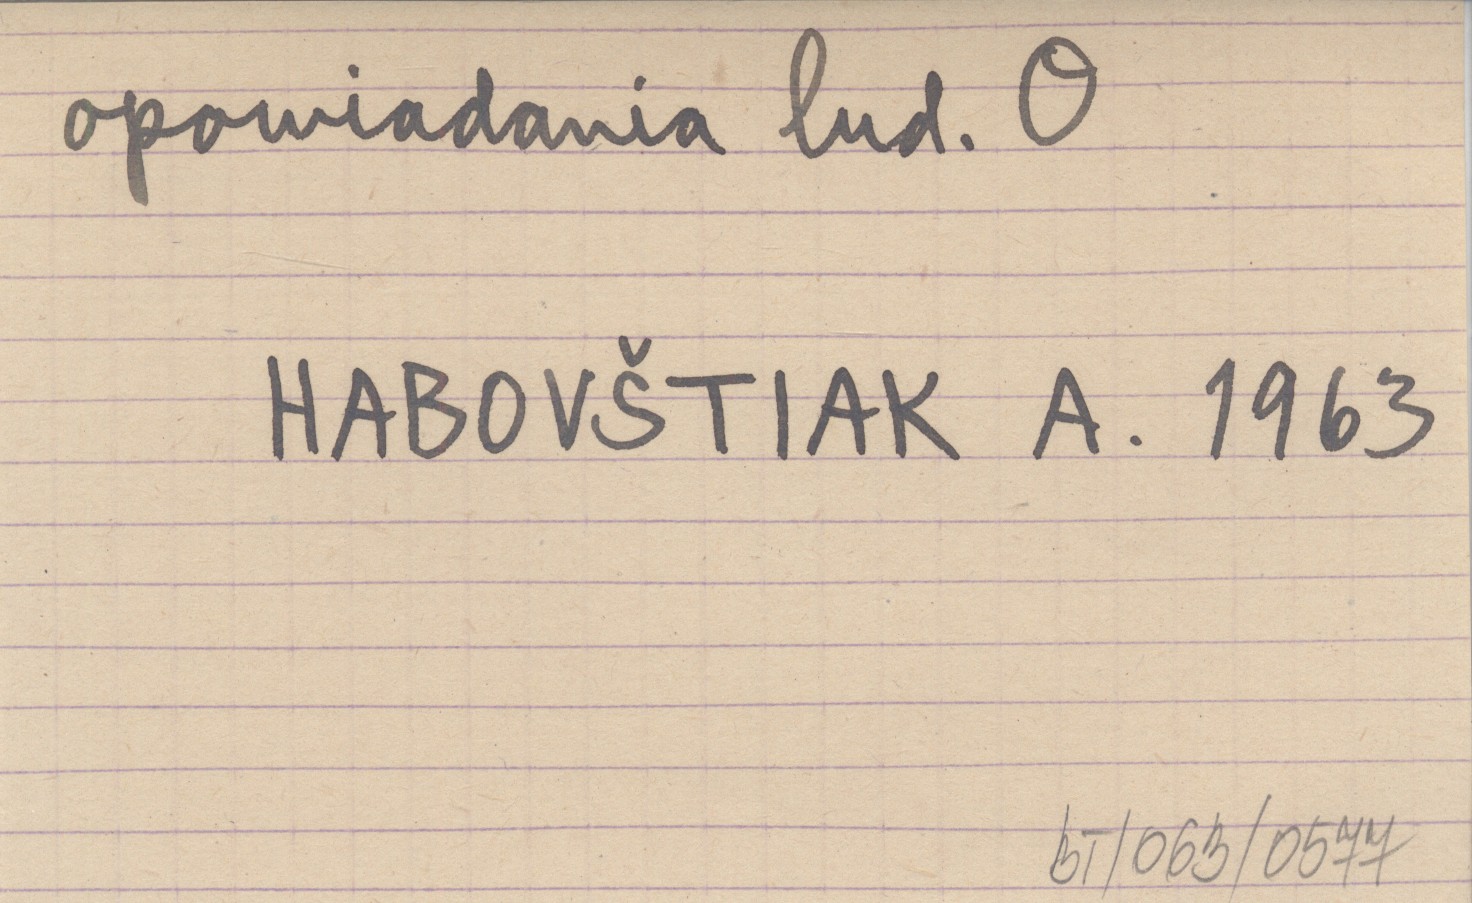 opowiadania lud. O
HABOVŠTIAK A. 1963
BT/063/0577